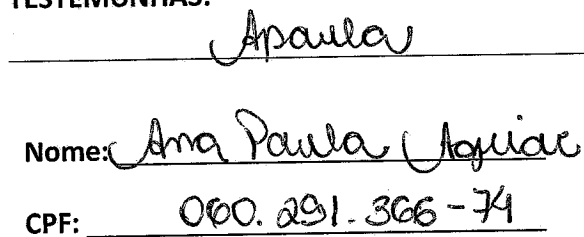 TESTEMUNHAS:
Apaula
Nome: Ana Paula Aguiar
CPF: 060.291.366-74